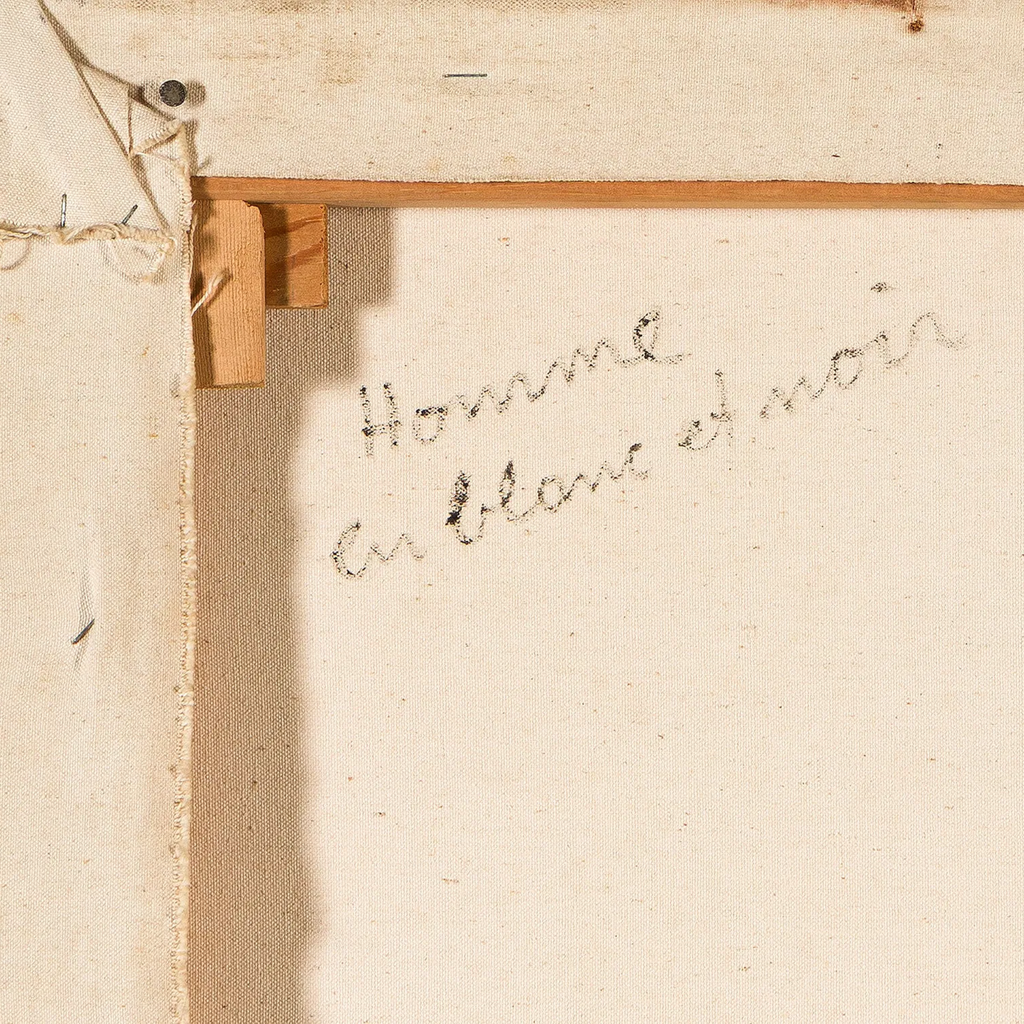 Homme
en blanc et noir